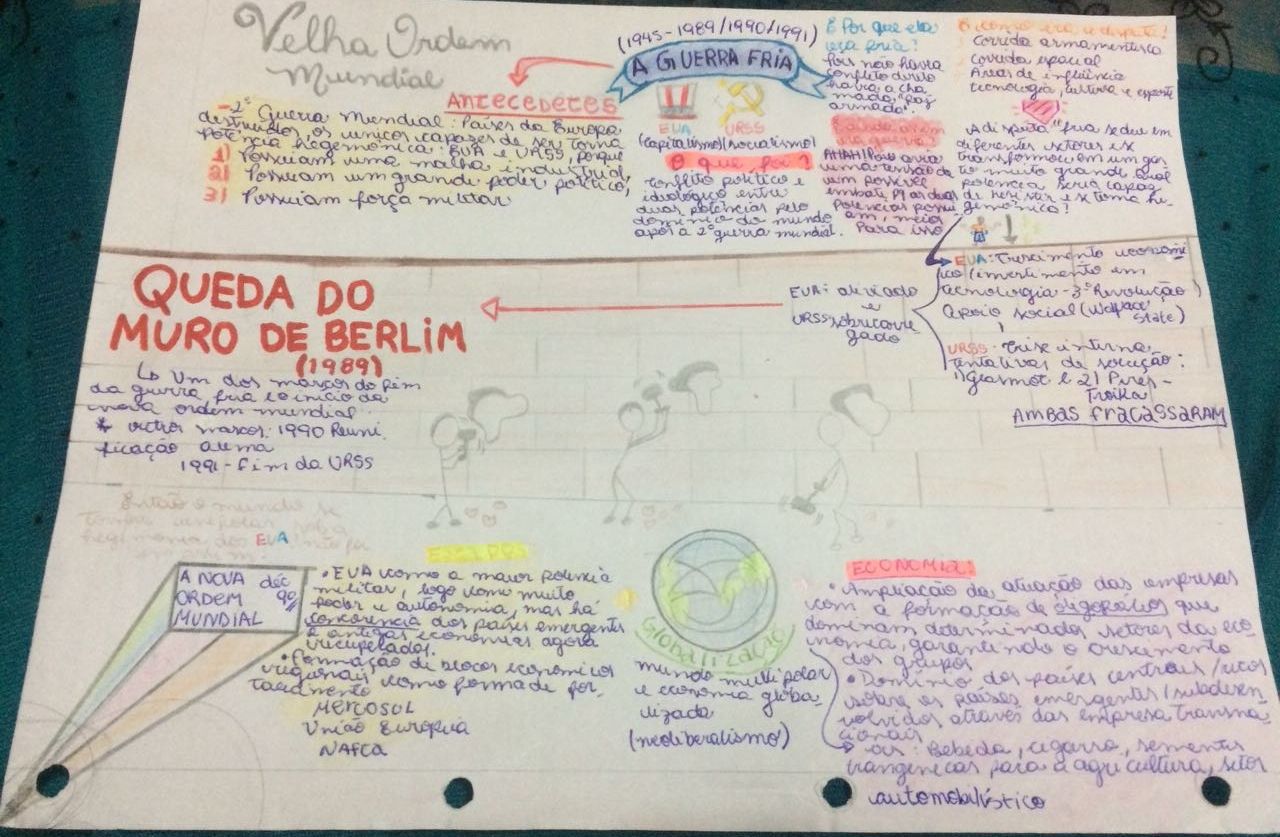 Velha Ordem
Mundial
Antecedetes
-2° Guerra Mundial: Países da Europa
destruídos, os unicos capazes de ser torna
potencia hegemônica: EUA e URSS, porque
1) Possuiam uma malha industrial,
2) Possuiam um grande poder politico,
3) Possuiam força militar
(1945-1989/1990/1991)
A GUERRA FRIA
EUA URSS
(capitalismo) (socialismo)
O que foi?
conflito politico e
ideologico entre
duas potências pelo
dominio do mundo
após a 2° guerra mundial.
E Por que ela
era fria?
Pois não havia
conflito direto
havia a cha
mada, "paz
armada".
AHAH! Pois avia
uma tensão de
um possivel
embate, pq as duas
Potencias possui
am, meios
Para isso
E como era a disputa?
Corrida armamentisca
Corrida espacial
Áreas de influência
tecnologia, cultura e esporte
A disputa "fria" se deu em
diferentes setores e se
transformou em um gas
to muito grande, qual
potencia seria capaz
de
gemônico?
EUA: Crescimento economi
co (invertimento em
tecnologia - 3° Revolução)
Apoio social (Welfare
State)
URSS: Crise interna
tentativas de solução:
1) Glasnost e 2) Peres-
Troika
AMBAS FRACASSARAM
EUA: aliviado
e
URSS: sobrecarre
gado
QUEDA DO
MURO DE BERLIM
(1989)
↳ Um dos marcos do fim
da guerra, fria e o inicio da
nova ordem mundial.
* outros marcos: 1990 Reuni
ficação alemã
1991 - Fim da URSS
Então o mundo se
tornou unipolar sob a
hegemonia dos EUA? não foi
bem assim
A NOVA déc
ORDEM 90
MUNDIAL
• EUA como a maior potencia
militar, logo como muito
poder e autonomia, mas há
concorencia dos países emergentes
e antigas economias agora
recuperadas.
• Formação de blocos economicos
regionais como forma de for
talecimento
MERCOSUL
União Europeia
NAFCA
Globalização
mundo multipolar
e economia globa
lizada
(neoliberalismo)
ECONOMIA:
• Ampliação da atuação das empresas
com a formação de oligopolios que
dominam determinados setores da eco
nomica, garantindo o crescimento
dos grupos
• Dominio dos países centrais/ricos
sobre os países emergentes/subdesen
volvidos através das empresa transna
cionais
Bebeda, cigarro, sementes
trangenecas para a agricultura, setor
automobilístico